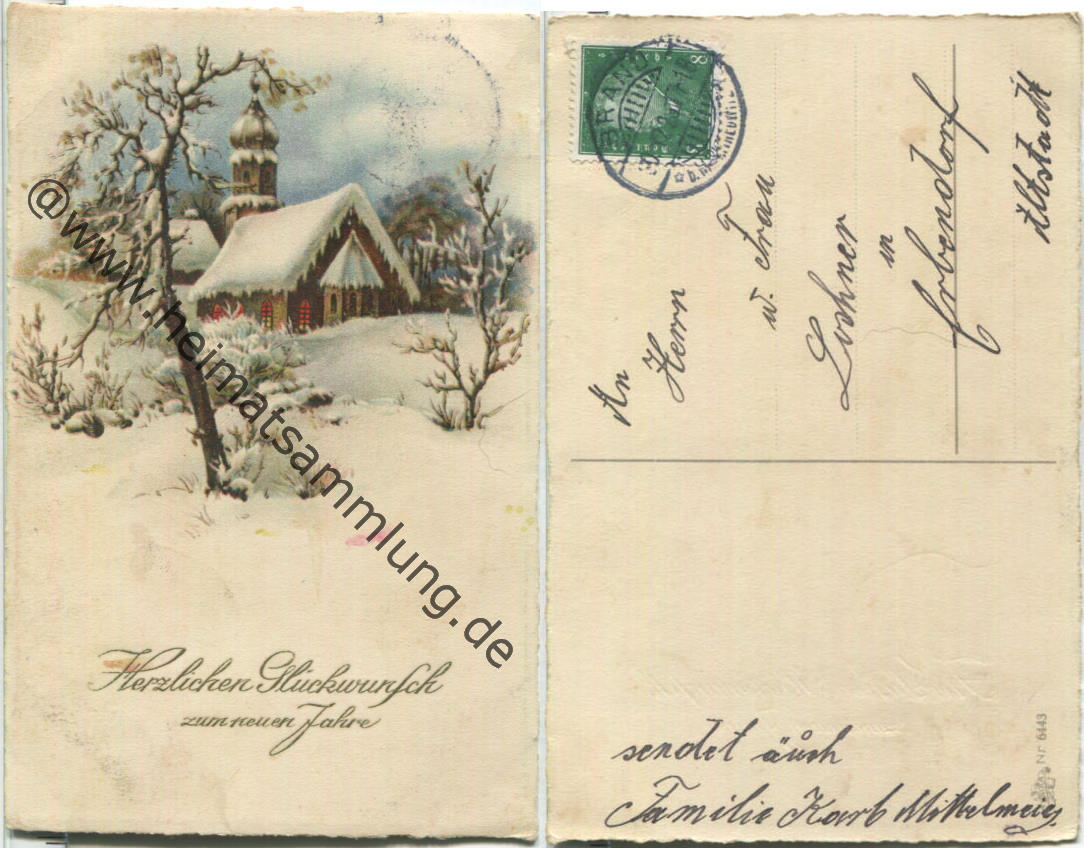 @www.heimatsammlung.de
Herzlichen Glückwunsch
zum neuen Jahre
BRAND
8
An
Herrn
w. Frau
Lochner
in
Erbendorf
Altstadt
sendet äuch
Familie Karb Mittelmeier
Nr 6443